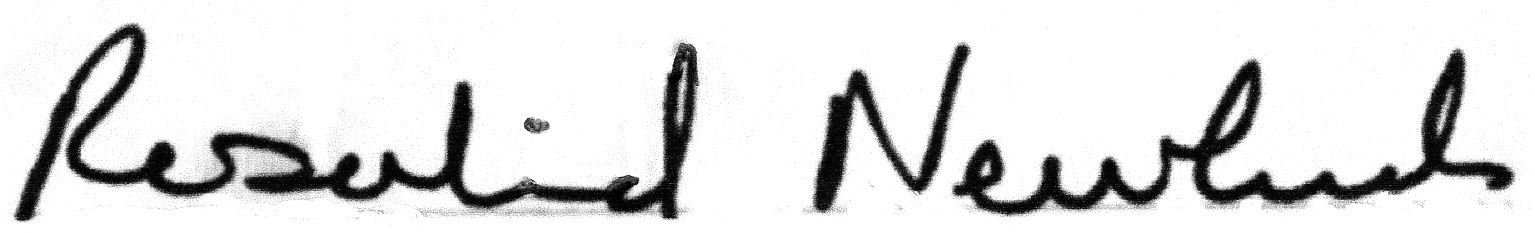 Rosalind Newlands